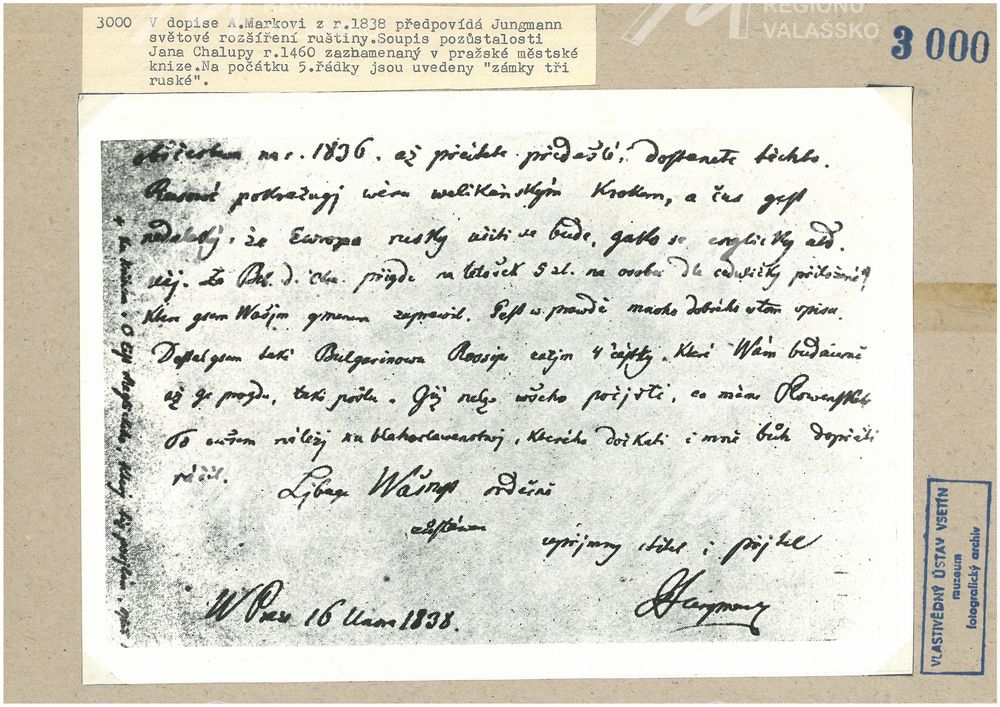 REGIONU
VALAŠSKO
3000 V dopise A.Markovi z r.1838 předpovídá Jungmann
světové rozšíření ruštiny.Soupis pozůstalosti
Jana Chalupy r.1460 zazhamenaný v pražské městské
knize.Na počátku 5.řádky jsou uvedeny "zámky tři
ruské".
3 000
na r. 1836. až přečtete předešlé, dostanete těchto.
Rusové pokračugj wěru welikánským krokem, a čas gest
nedaleký, že Europa rusky učiti se bude, gako se englicky
Za přigde na letošek 5 zl. na osobu dle ceduličky přiložené
Kteu gsem Wašjm gmenem zaprawil. Gest w prawdě mnoho dobrého w tom spisu.
Dostal gsem také Bulgarinowu Rossigi 4 částky, které Wám budaucně
až ge progdu, také pošlu. Giž nelze wšeho přigjti, co máme
To ku blahoslawenstwj, kterého dočkati i mně bůh dopřáti
ráčil.
Ljbage Wás srdečně
zůstáwám
upřjmný ctitel i přjtel
W Praze 16 Února 1838.
Jungmann
VLASTIVĚDNÝ ÚSTAV VSETÍN
muzeum
fotografický archiv